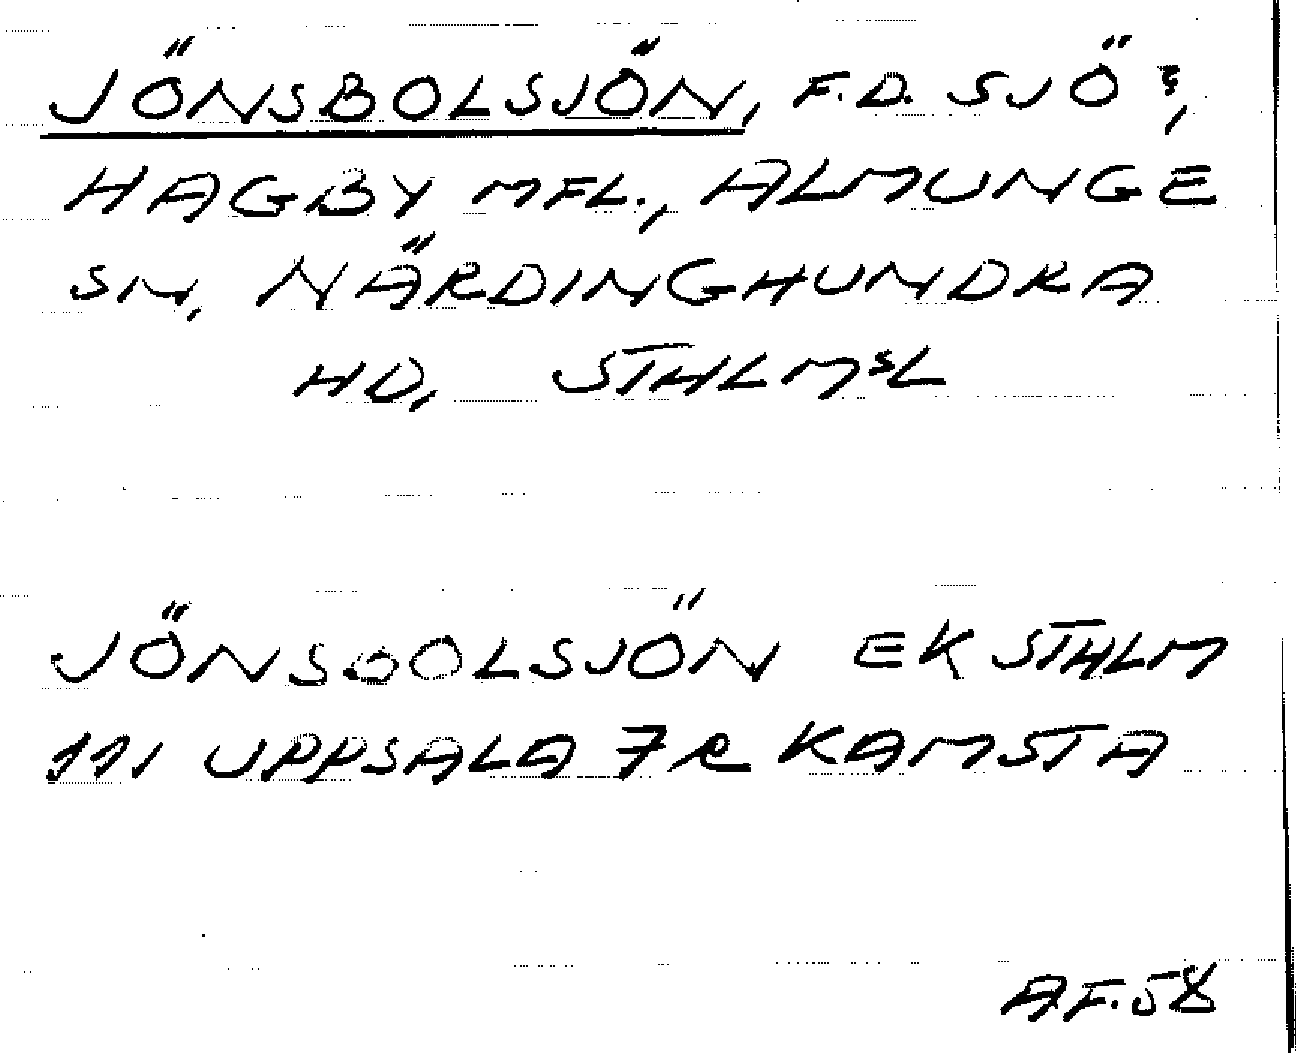 JÖNSBOLSJÖN, F.D. SJÖ?,
HAGBY MFL., ALMUNGE
SN, NÄRDINGHUNDRA
HD, STHLMSL
JÖNSBOLSJÖN EK STHLM
111 UPPSALA 7R KAMSTA
A.F. 58